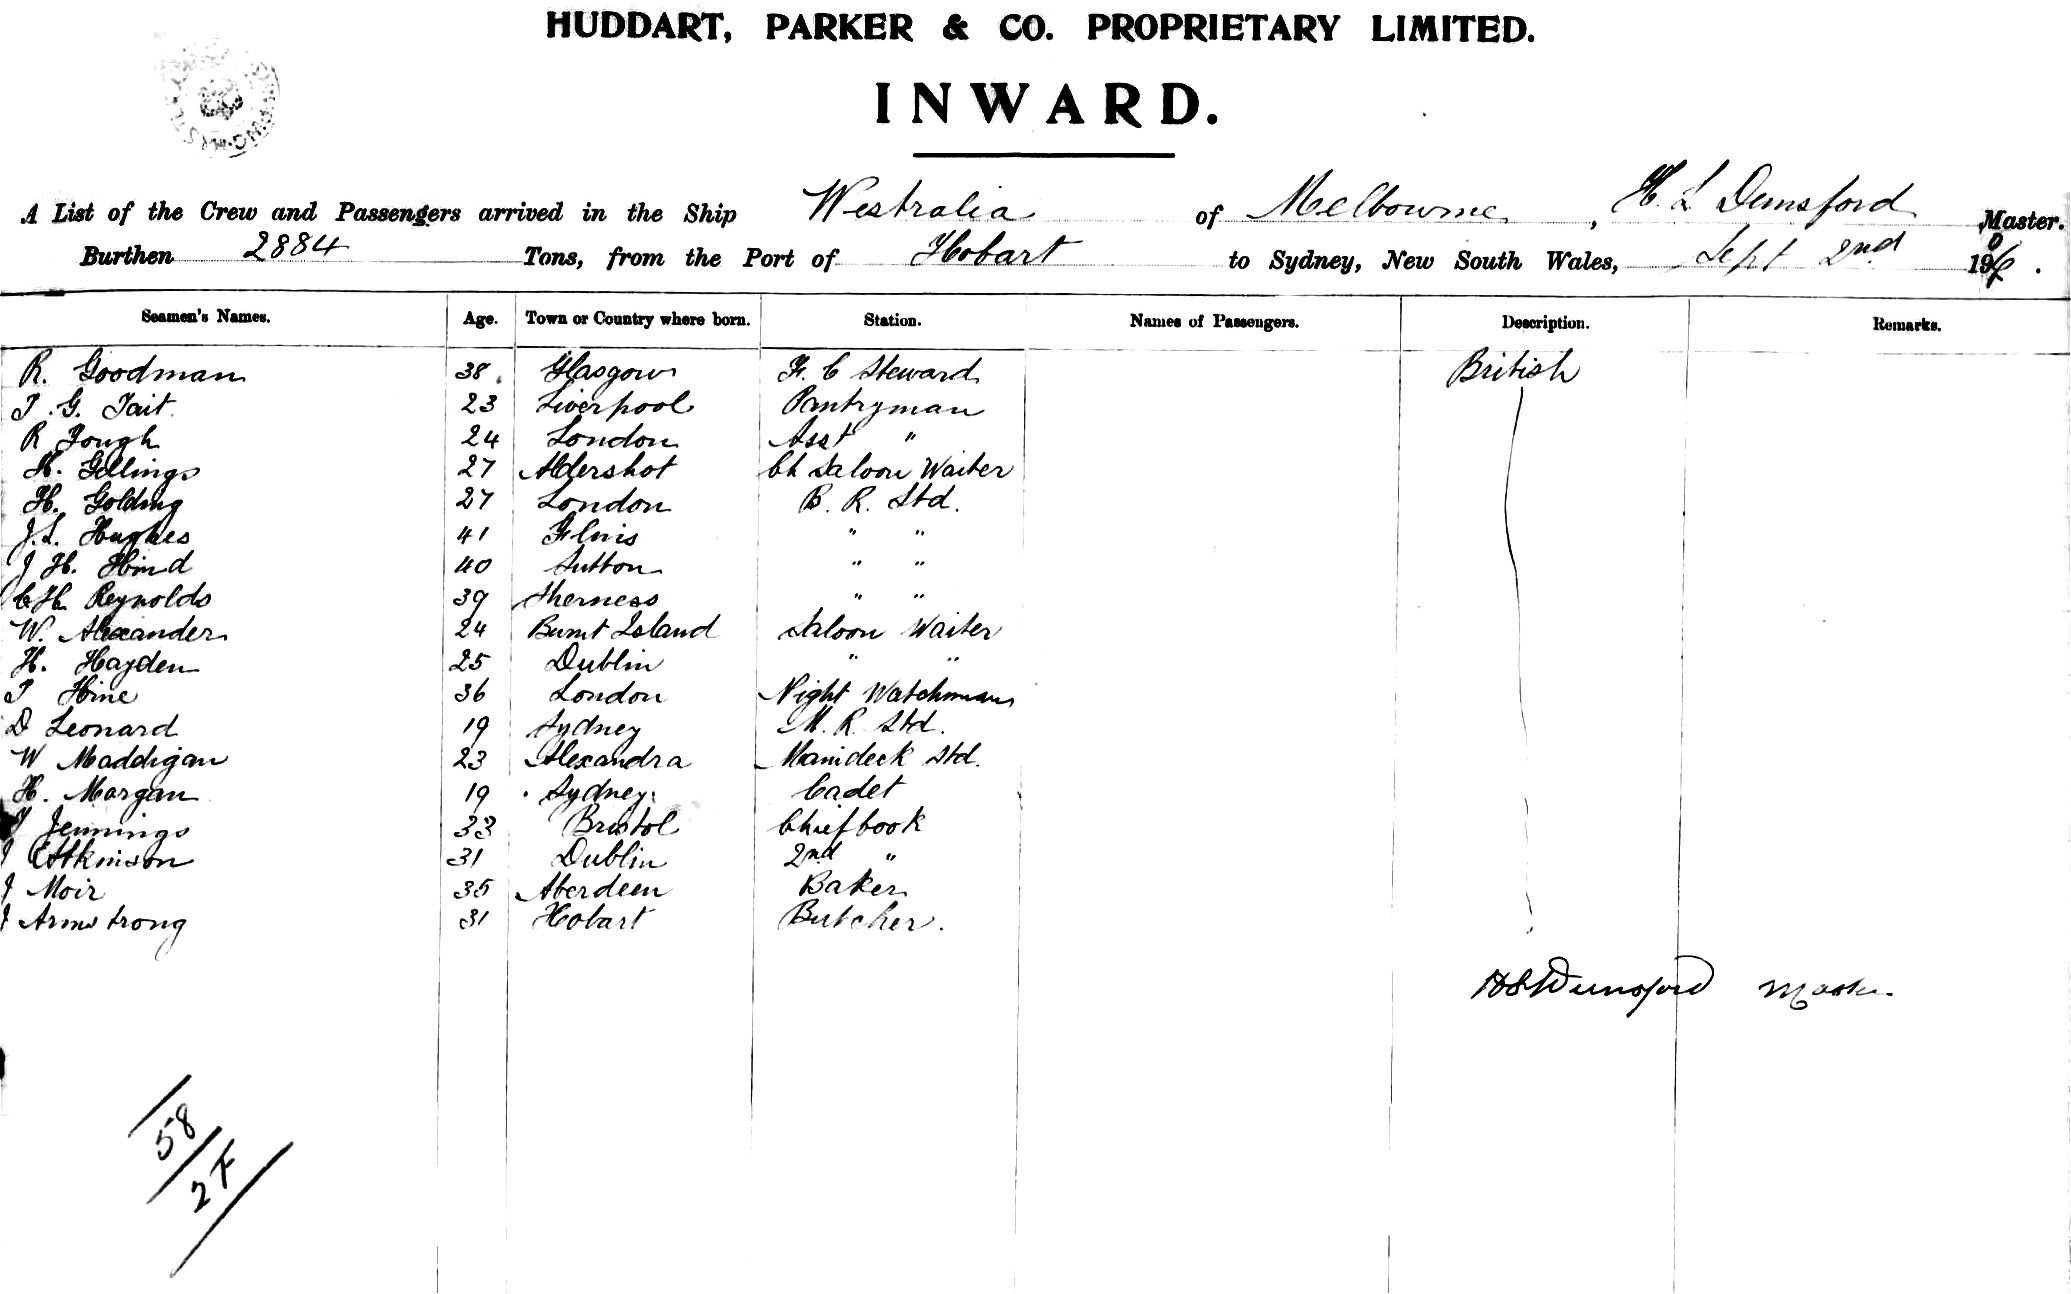 HUDDART, PARKER & CO. PROPRIETARY LIMITED.
INWARD.
A List of the Crew and Passengers arrived in the Ship Westralia of Melbourne, H. L Dunsford Master.
Burthen 2884 Tons, from the Port of Hobart to Sydney, New South Wales, Sept 2nd 1906.
Seamen's Names. Age. Town or Country where born. Station. Names of Passengers. Description. Remarks.
R. Goodman 38 Glasgow F. C Steward British
T. G. Tait 23 Liverpool Pantryman
R Yough 24 London Asst "
H. Gellings 27 Aldershot Ch Saloon Waiter
H. Golding 27 London B. R. Std.
J. L. Hughes 41 " "
J H. Hind 40 Sutton " "
C H. Reynolds 39 Sherness " "
W. Alexander 24 Burnt Island Saloon Waiter
H. Hayden 25 Dublin " "
T Hine 36 London Night Watchman
D Leonard 19 Sydney M. R. Std.
W Maddigan 23 Alexandra Maindeck Std.
H. Morgan 19 Sydney Cadet
Jennings 33 Bristol Chief Cook
J Atkinson 31 Dublin 2nd "
J Moir 35 Aberdeen Baker
J Armstrong 31 Hobart Butcher.
HLDunsford Master.
58
27